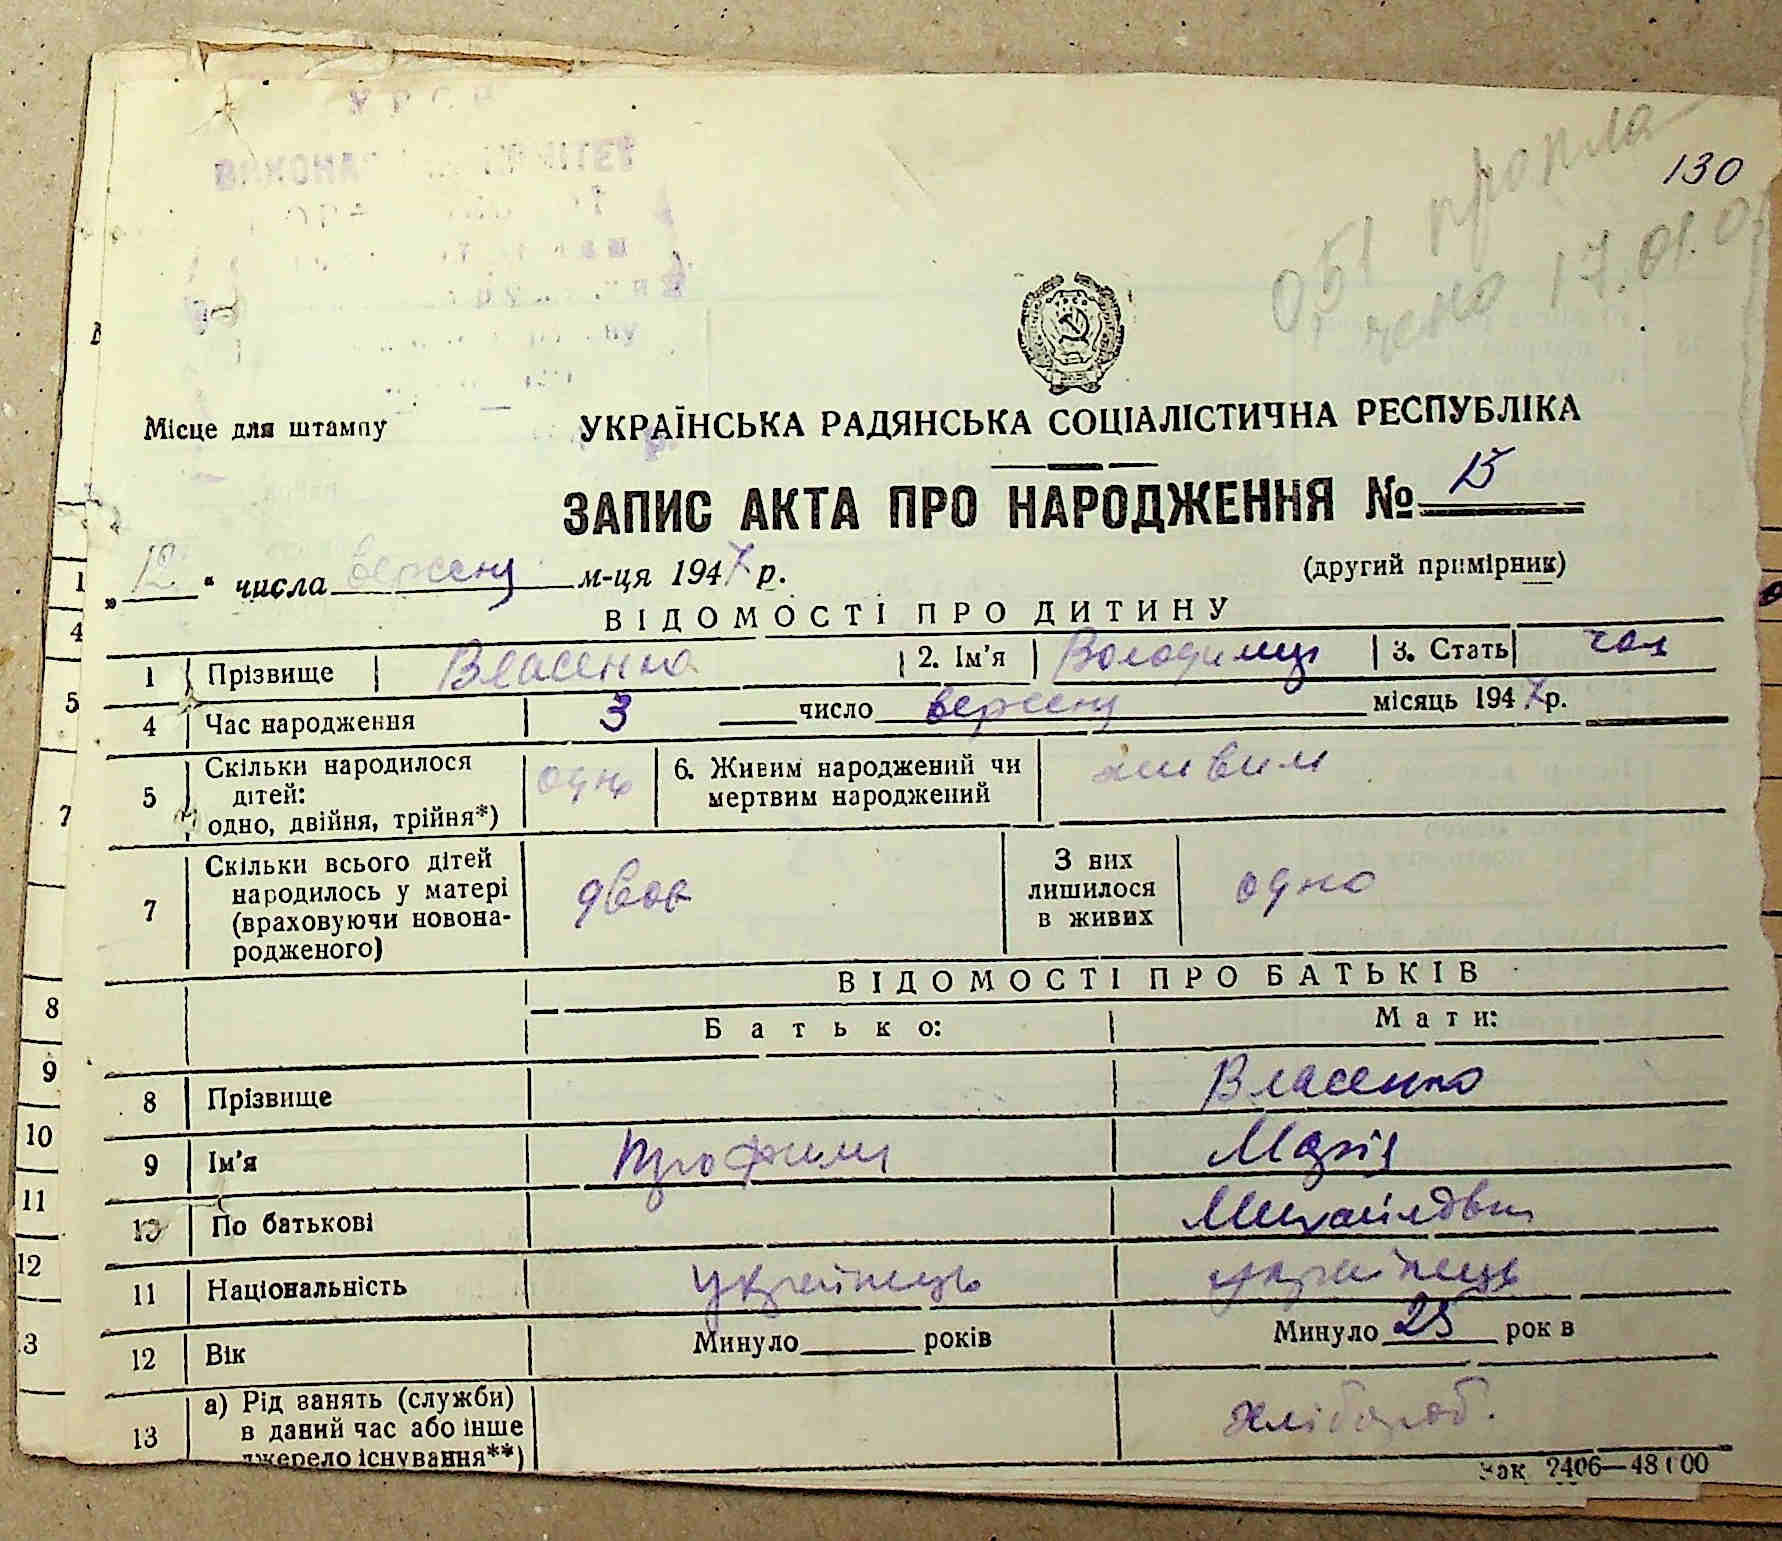 130
Місце для штампу
УКРАЇНСЬКА РАДЯНСЬКА СОЦІАЛІСТИЧНА РЕСПУБЛІКА
ЗАПИС АКТА ПРО НАРОДЖЕННЯ № 15
(другий примірник)
„ 12 “ числа вересня м-ця 1947 р.
ВІДОМОСТІ ПРО ДИТИНУ
1 Прізвище Власенко 2. Ім'я Володимир 3. Стать чол
4 Час народження 3 число вересня місяць 1947 р.
5 Скільки народилося дітей: одно, двійня, трійня*) одно 6. Живим народжений чи мертвим народжений живим
7 Скільки всього дітей народилось у матері (враховуючи новонародженого) двоє З них лишилося в живих одно
ВІДОМОСТІ ПРО БАТЬКІВ
Батько: Мати:
8 Прізвище Власенко
9 Ім'я Трофим Марія
10 По батькові Михайловна
11 Національність українець українець
12 Вік Минуло років Минуло 25 рок в
13 а) Рід занять (служби) в даний час або інше джерело існування**) хлібороб.
Зак 2406—48